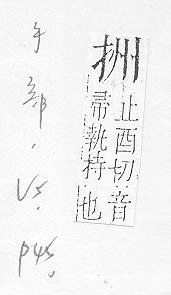 止酉切音
帚執持也
手部, V5, P45.